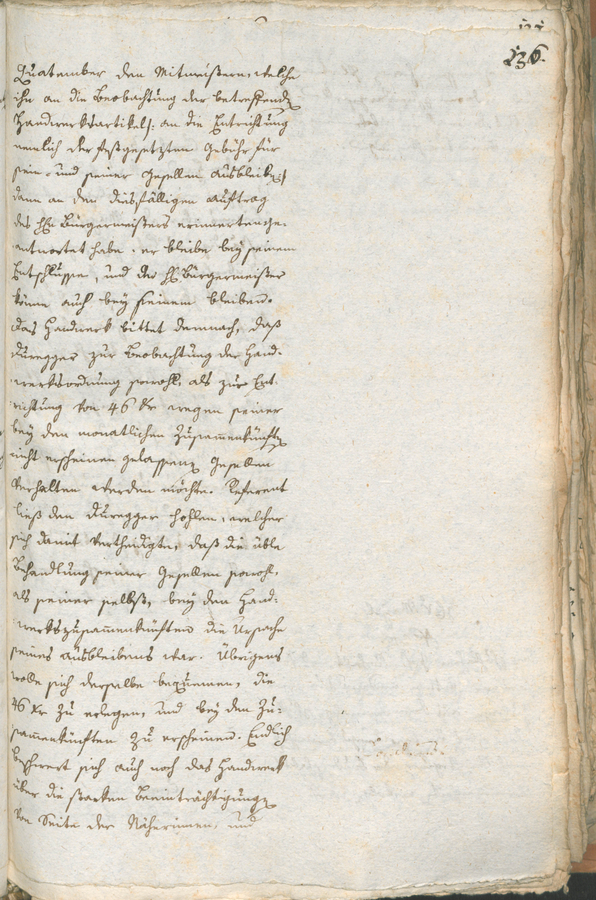 136.
Quatember den Mitmeistern, welche
ihn an die Beobachtung der betreffenden
Handwerksartikel /: an die Entrichtung
nemlich der festgesetzten Gebühr für
sein- und seiner Gesellen Ausbleiben :/
dann an den diesfälligen Auftrag
des H Bürgermeisters erinnerten, ge-
antwortet habe: er bleibe bey seinem
Entschlusse, und der H Bürgermeister
könne auch bey seinem bleiben.
Das Handwerk bittet demnach, daß
Duregger zur Beobachtung der Hand-
werksordnung sowohl, als zur Ent-
richtung von 46 kr wegen seiner
bey den monatlichen Zusammenkünften
nicht erscheinen gelassenen Gesellen
verhalten werden möchte. Referent
ließ den Duregger hohlen, welcher
sich damit vertheidigte, daß die üble
Behandlung seiner Gesellen sowohl,
als seiner selbst, bey den Hand-
werkszusammenkünften die Ursache
seines Ausbleibens war. Übrigens
wolle sich derselbe bequemen, die
46 kr zu erlegen, und bey den Zu-
sammenkünften zu erscheinen. Endlich
beschwert sich auch noch das Handwerk
über die starken Beeinträchtigungen
von Seite der Näherinnen, und